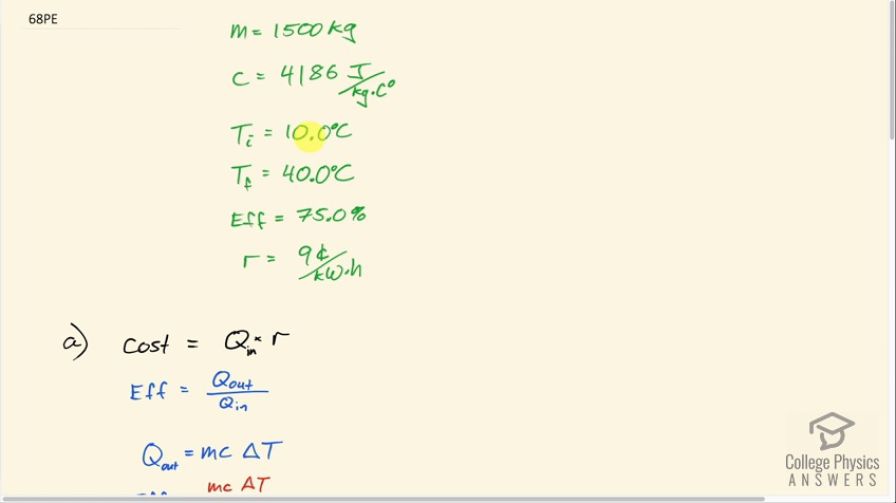 68PE
m = 1500 kg
c = 4186 J/kg·C°
Ti = 10.0°C
Tf = 40.0°C
Eff = 75.0%
r = 9¢/kW·h
a) cost = Qin × r
Eff = Qout/Qin
Qout = mc ΔT
mc ΔT
College Physics
ANSWERS